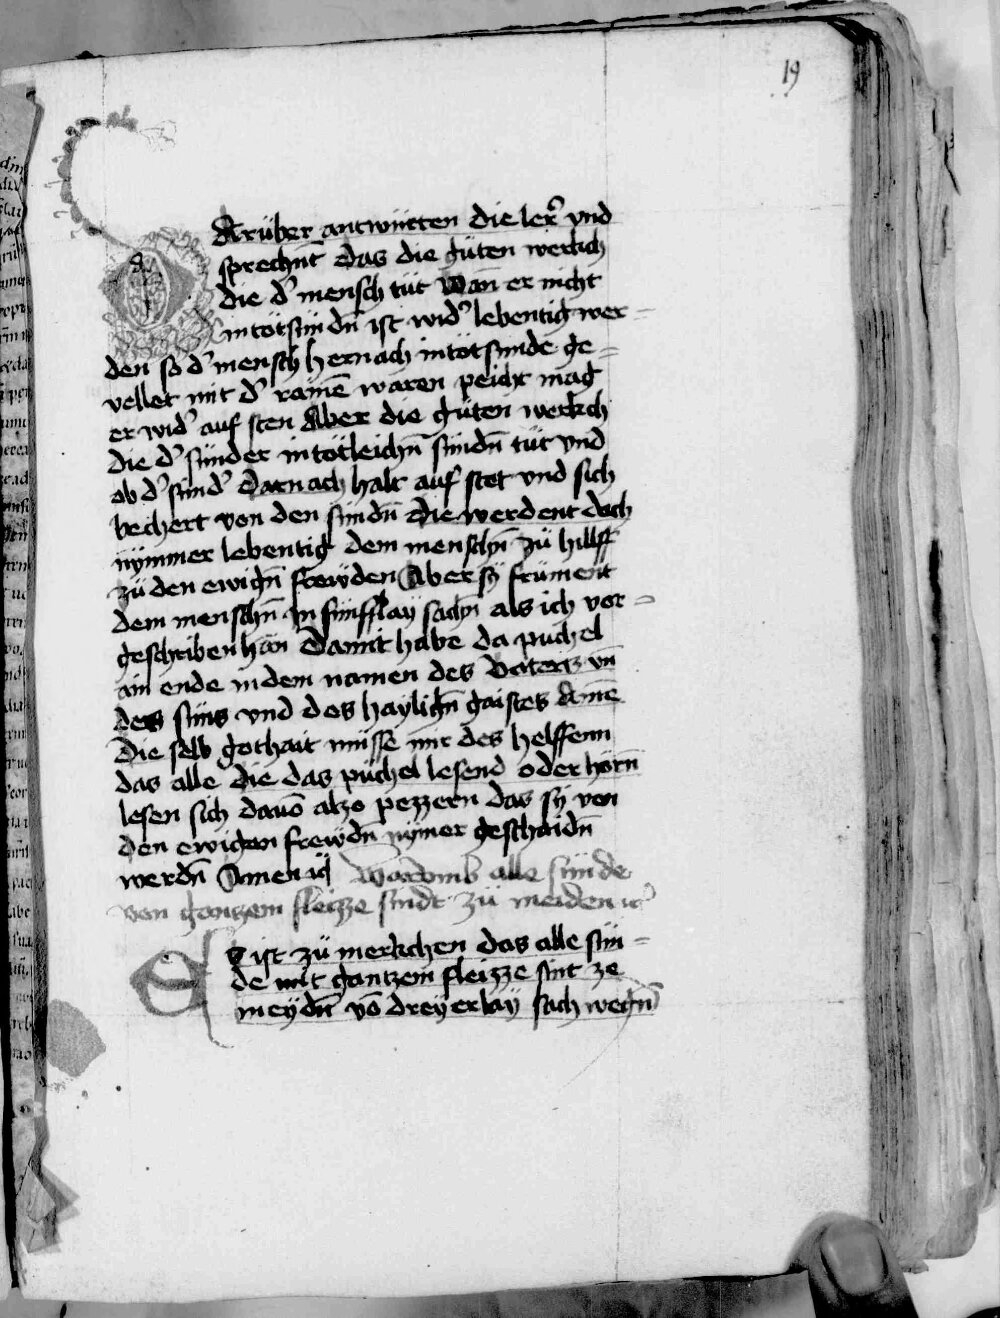 19
DArüber antwürten die ler̾ vnd
sprechnt das die guten werkch
die d̾ mensch tüt Wan̄ er nicht
in totsündn̄ ist wid̾ lebentig wer=
den so d̾ mensch hernach in totsunde ge=
vellet mit d̾ rainē waren peicht mag
er wid̾ auf sten Aber die guten werkch
die d̾ sunder in totleichn̄ sündn̄ tüt vnd
ob d̾ sund̾ Darnach halt auf stet vnd sich
bechert von den sündn̄ die werdent doch
nymmer lebentig dem menschn̄ zü hillff
zü den ewign̄ frewden Aber sy frument
dem menschn̄ in fünfflay sachn̄ als ich vor=
geschriben han Damit habe da puchel
ain ende in dem namen des Vaters vn̄
des suns vnd des haylign̄ gaistes Amē
Die selb gothait müsse mir des helffenn
das alle die das püchel lesend oder hörn̄
lesen sich dauō alzo pezzern das sy von
den ewigen frewdn̄ nymer geschaidn̄
werdn̄ Amen Warumb alle sünde
von ganzem fleizze sindt zü meiden
ES ist zü merkchen das alle sün=
de mit gantzem fleizze sint ze
meydn̄ vō dreyerlay sach wegn̄